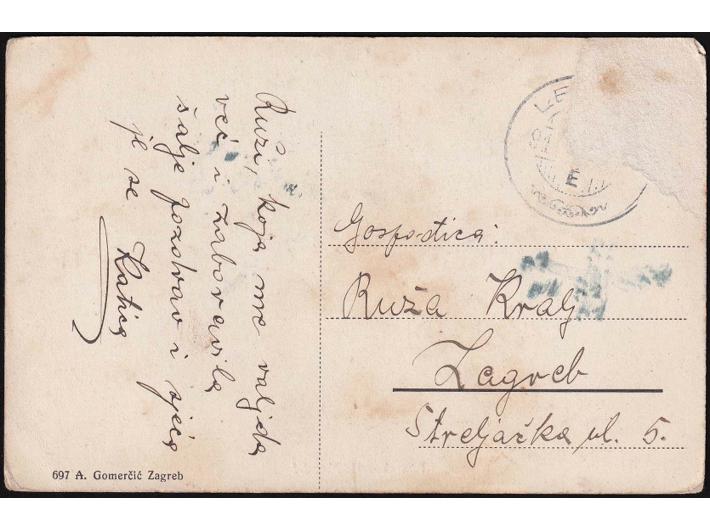 Ruži, koja me valjda
već i zaboravila
šalje pozdrav i sjeća
je se Katica
Gospođica:
Ruža Kralj
Zagreb
Streljačka ul. 5.
697 A. Gomerčić Zagreb
E